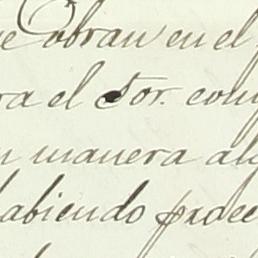 e obran en el
ra el Sor. con
n manera al
habiendo proce